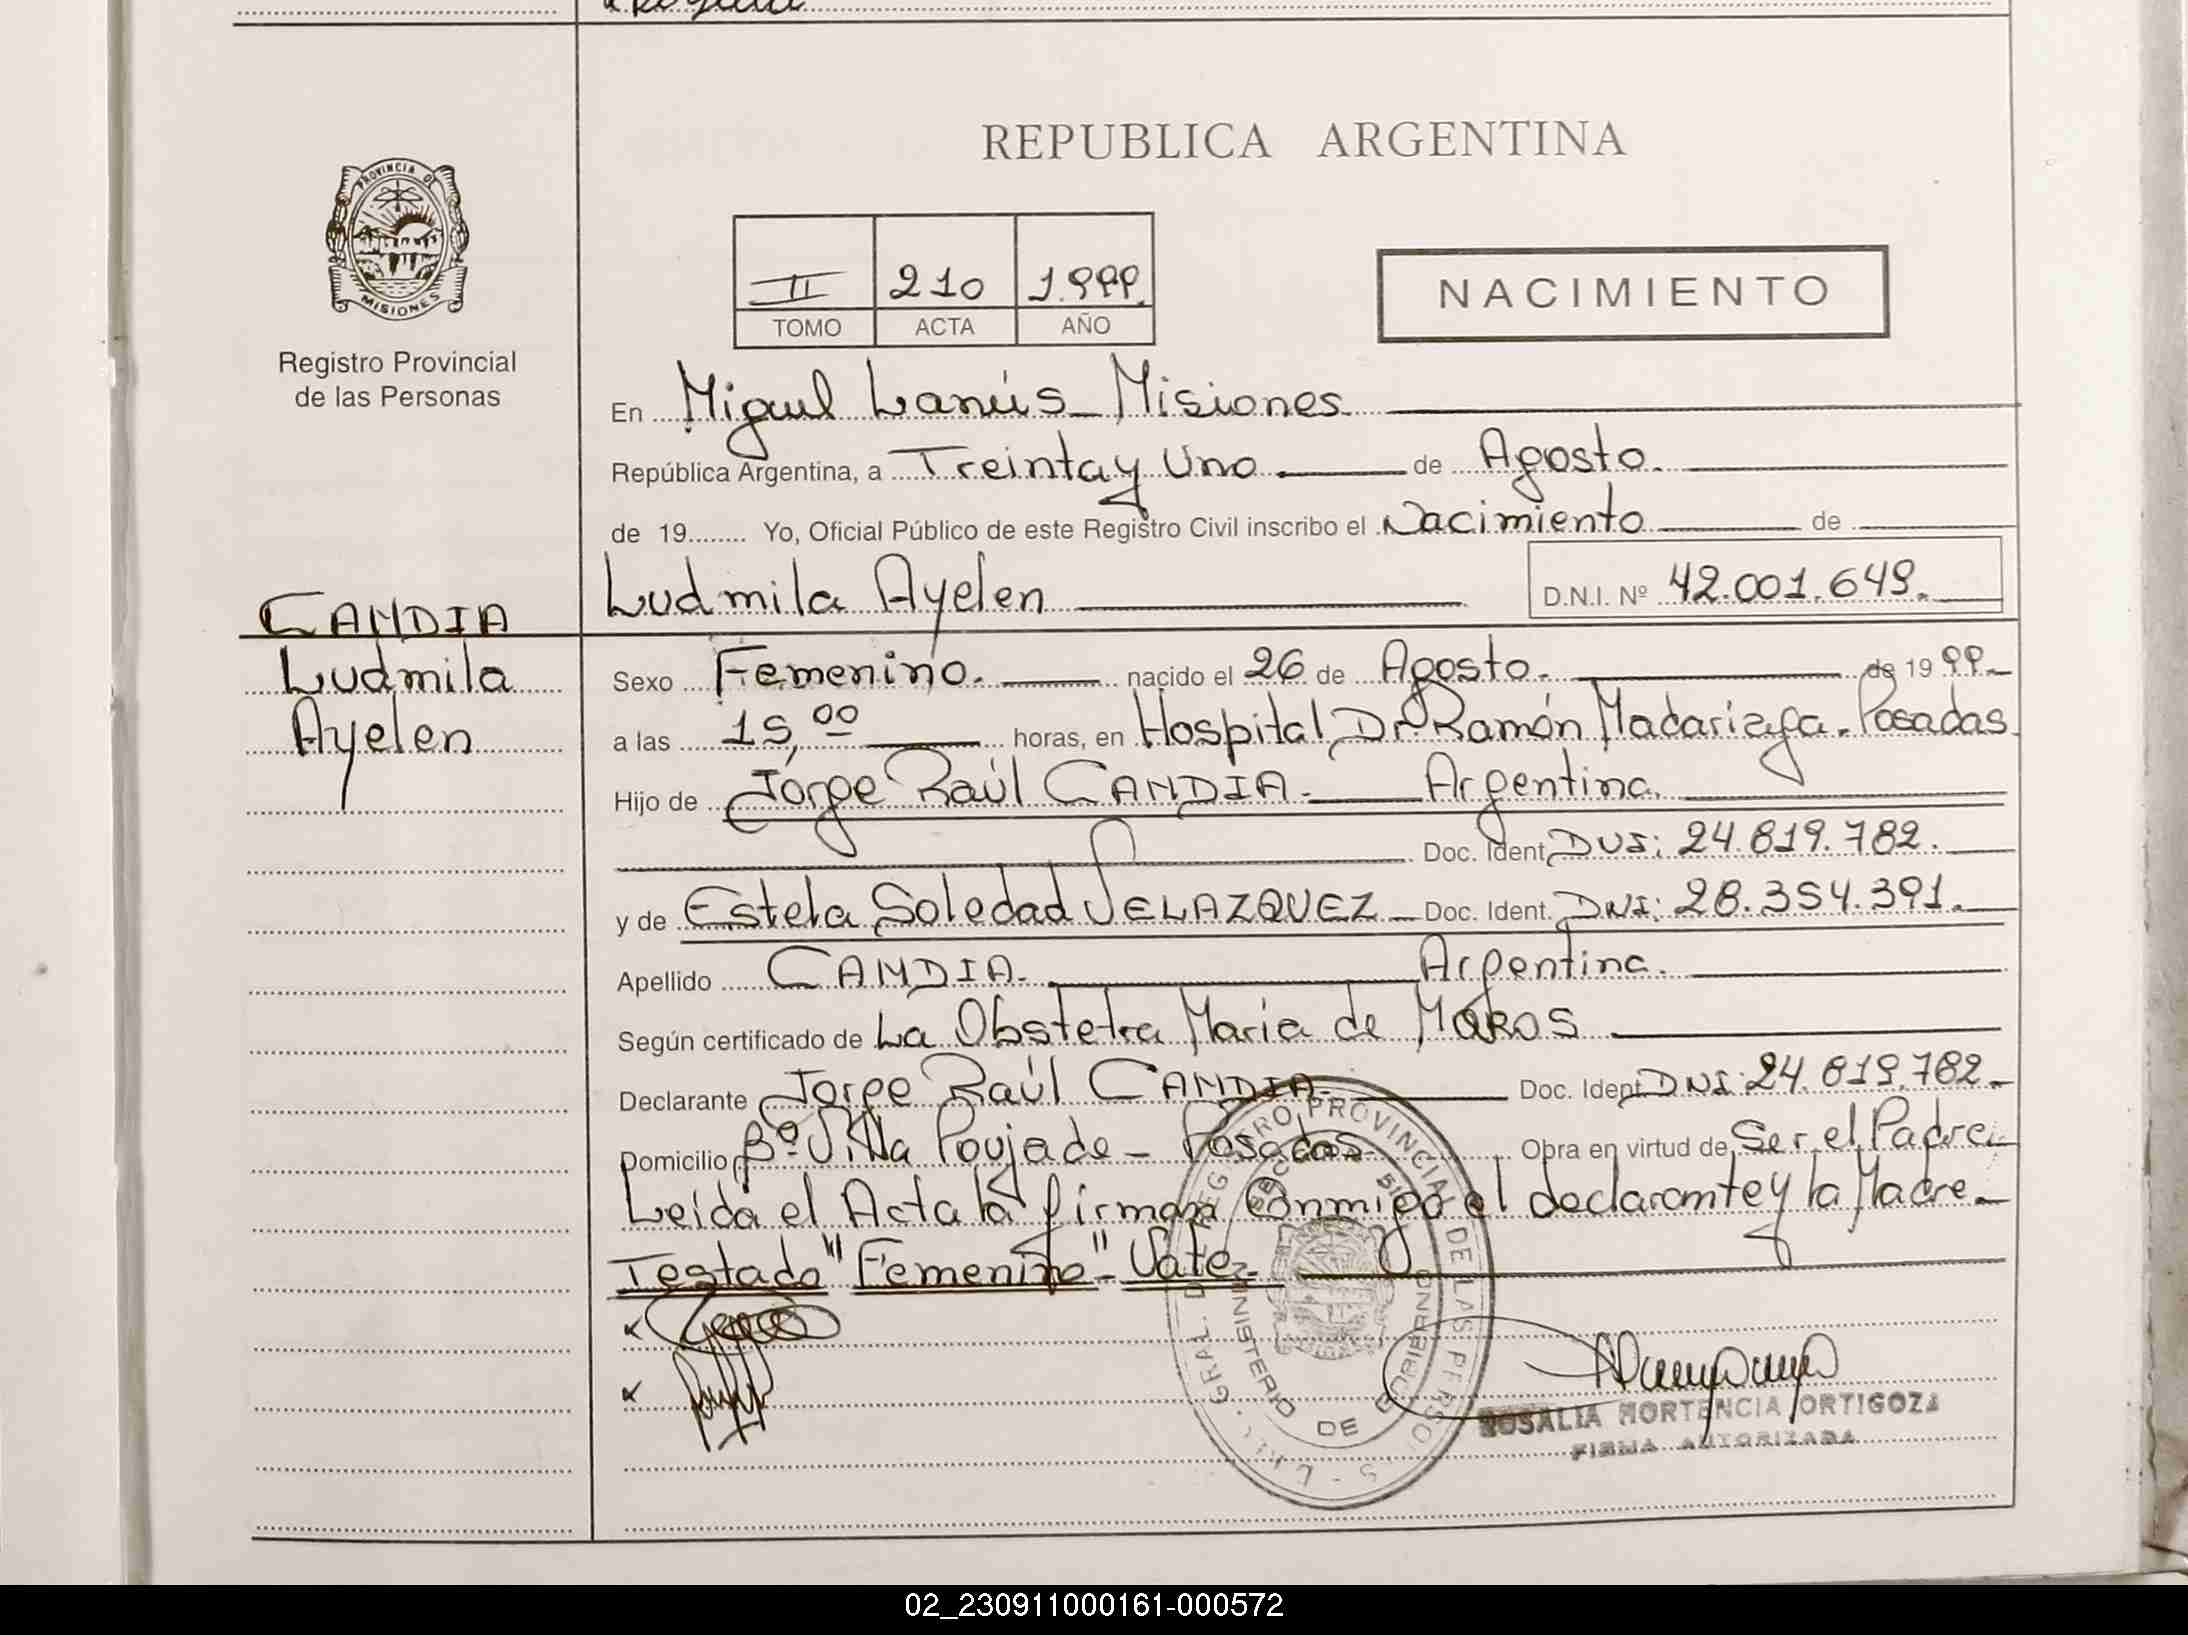 REPUBLICA ARGENTINA
PROVINCIA DE
MISIONES
Registro Provincial
de las Personas
II 210 1.999
TOMO ACTA AÑO
NACIMIENTO
En Miguel Lanús - Misiones
República Argentina, a Treinta y Uno de Agosto.
de 19........ Yo, Oficial Público de este Registro Civil inscribo el Nacimiento de
Ludmila Ayelen D.N.I. Nº 42.001.649.
CANDIA
Ludmila
Ayelen
Sexo Femenino. nacido el 26 de Agosto. de 1999.
a las 15,00 horas, en Hospital Dr Ramón Madariaga. Posadas
Hijo de Jorge Raúl CANDIA. Argentina.
Doc. Ident. DUI: 24.819.782.
y de Estela Soledad VELAZQUEZ Doc. Ident. DNI: 28.354.391.
Apellido CANDIA. Argentina.
Según certificado de La Obstetra Maria de
Declarante Jorge Raúl CANDIA. Doc. Ident. DNI: 24.819.782.
Domicilio Bº Villa Poujade - Posadas Obra en virtud de Ser el Padre.
Leida el Acta la firman conmigo el declarante y la Madre.
Testado "Femenino" - Vale.
DE LAS PERSONAS
MINISTERIO DE GOBIERNO
ROSALIA HORTENCIA ORTIGOZA
FIRMA AUTORIZADA
02_230911000161-000572